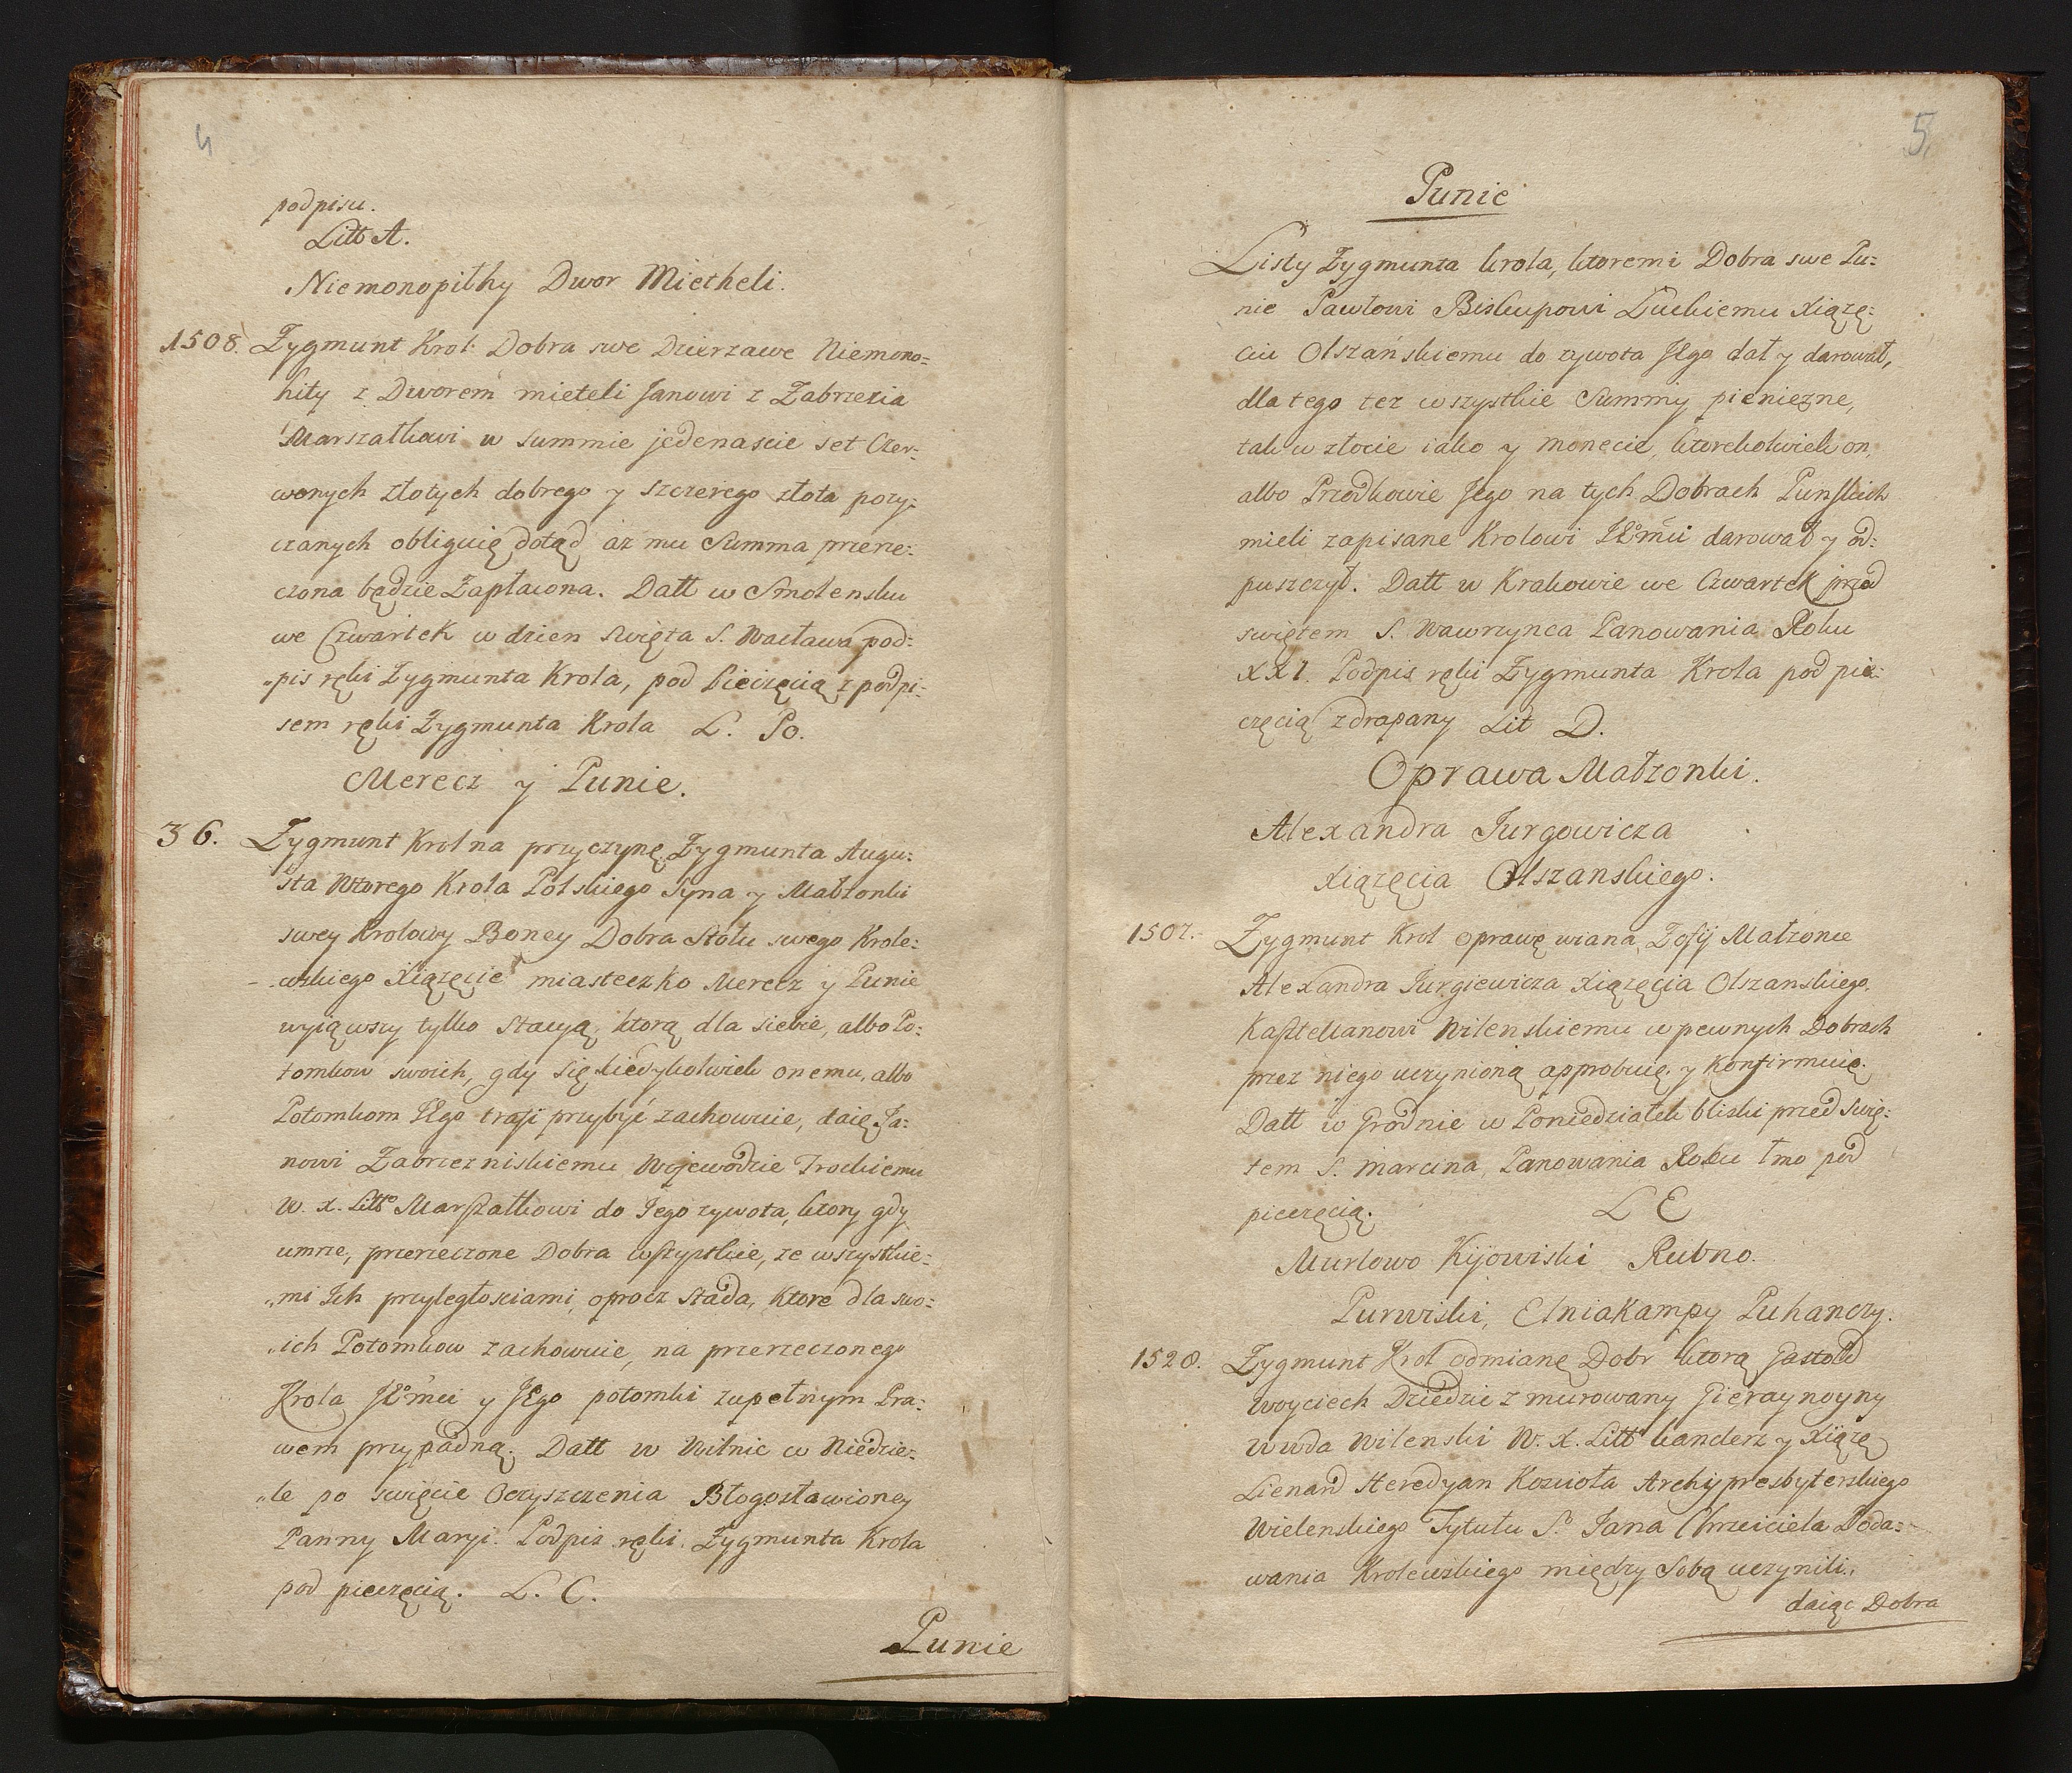 4
podpisu.
Litt A.
Niemonopithy Dwor Mietheli.
1508. Zygmunt Krol Dobra swe Dzierzawe Niemono=
hity z Dworem mieteli Janowi z Zabrzezia
Marszałkowi w summie jedenascie set Czer=
wonych złotych dobrego y szczerego złota pozy=
czanych obliguię dotąd aż mu Summa przere=
czona będzie Zapłacona. Datt w Smolensku
we Czwartek w dzien Swięta S. Wacława pod=
"pis ręki Zygmunta Krola, pod Pieczęcią z podpi=
sem ręki Zygmunta Krola L. Po.
Merecz y Punie.
36. Zygmunt Krol na przyczynę Zygmunta Augu=
sta Wtorego Krola Polskiego Syna y Małzonki
swey Krolowy Boney Dobra Stołu swego Krole=
wskiego Xiązęcie miasteczko Merecz y Punie
wyiąwszy tylko stacyą, ktorą dla siebie, albo Po=
tomkow swoich, gdy się kiedykolwiek onemu, albo
Potomkom JEgo trafi przybyć zachowuie, daię Ja=
nowi Zabrzezniskiemu Wojewodzie Trockiemu
W. X. Litt° Marszałkowi do Jego zywota, ktory gdy
umrze, przerzeczone Dobra wszystkie, ze wszystkie=
"mi Ich przyległosciami, oprocz Stada, ktore dla swo=
"ich Potomkow zachowuie, na przerzeczonego
Krola JKo̊mci y JEgo potomki zupełnym Pra=
wem przypadną. Datt w Wilnie w Niedzie=
"le po swięcie Oczyszczenia Błogosławioney
Panny Maryi. Podpis ręki Zygmunta Krola
pod pieczęcią. L. C.
Punie
5
Punie
Listy Zygmunta krola, ktoremi Dobra swe Pu=
nie Pawłowi Biskupowi Łuckiemu Xiązę=
ciu Olszańskiemu do zywota JEgo dał y darował,
dla tego tez wszystkie Summy pieniezne,
tak w złocie iako y monecie, ktorekolwiek on,
albo Przodkowie Jego na tych Dobrach Punskich
mieli zapisane Krolowi JKo̊mci darował y od=
puszczył. Datt w Krakowie we Czwartek przed
swiętem S. Wawrzynca Panowania Roku
XXI. Podpis ręki Zygmunta Krola pod pie=
częcią zdrapany Lit D.
Oprawa Małzonki.
Alexandra Jurgowicza
Xiązęcia Olszanskiego.
1507. Zygmunt Krol oprawę wiana Zofij Małzonce
Alexandra Jurgiewicza Xiązęcia Olszanskiego
Kasztellanowi Wilenskiemu w pewnych Dobrach
przez niego uczynioną approbuię y Konfirmuię.
Datt w Grodnie w Poniedziałek bliski przed Swię=
tem S. Marcina, Panowania Roku 1mo pod
pieczęcią. L E
Murlowo Kijowiski Rubno.
Purwiski, Elniakampy Puhanczy.
1528. Zygmunt Krol odmianę Dobr ktorą Gastołd
Woyciech Dziedzic z murowany Gieraynoyny
Wwda Wilenski W. X. Litt° kanclerz y Xiązę
Lienard Heredyan Koscioła Archyprezbyterskiego
Wielenskiego Tytułu S° Jana Chrzciciela Poda=
wania Krolewskiego między Sobą uczynili,
daiąc Dobra